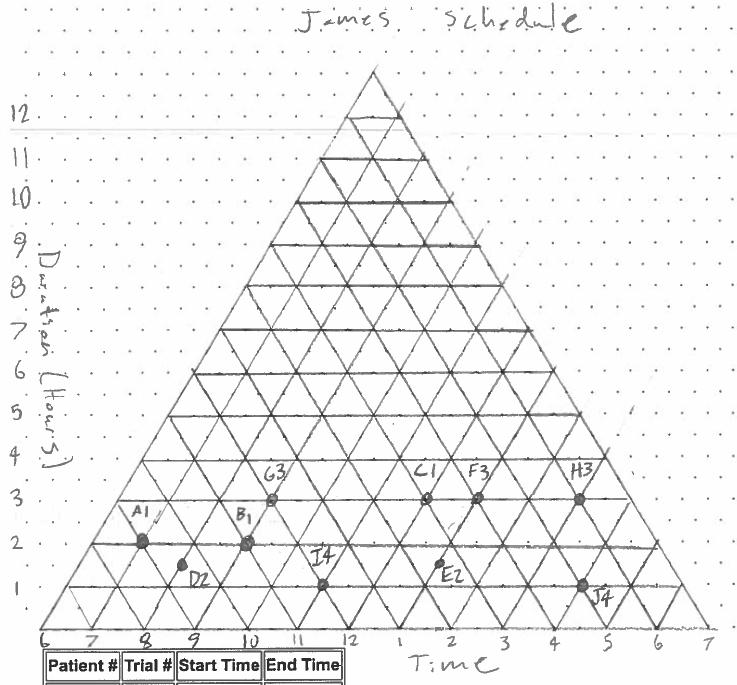 James Schedule
12
11
10
9
8
7
6
5
4
3
2
1
Duration (Hours)
G3 C1 F3 H3
A1 B1
I4
D2 E2
J4
6 7 8 9 10 11 12 1 2 3 4 5 6 7
Time
Patient # Trial # Start Time End Time